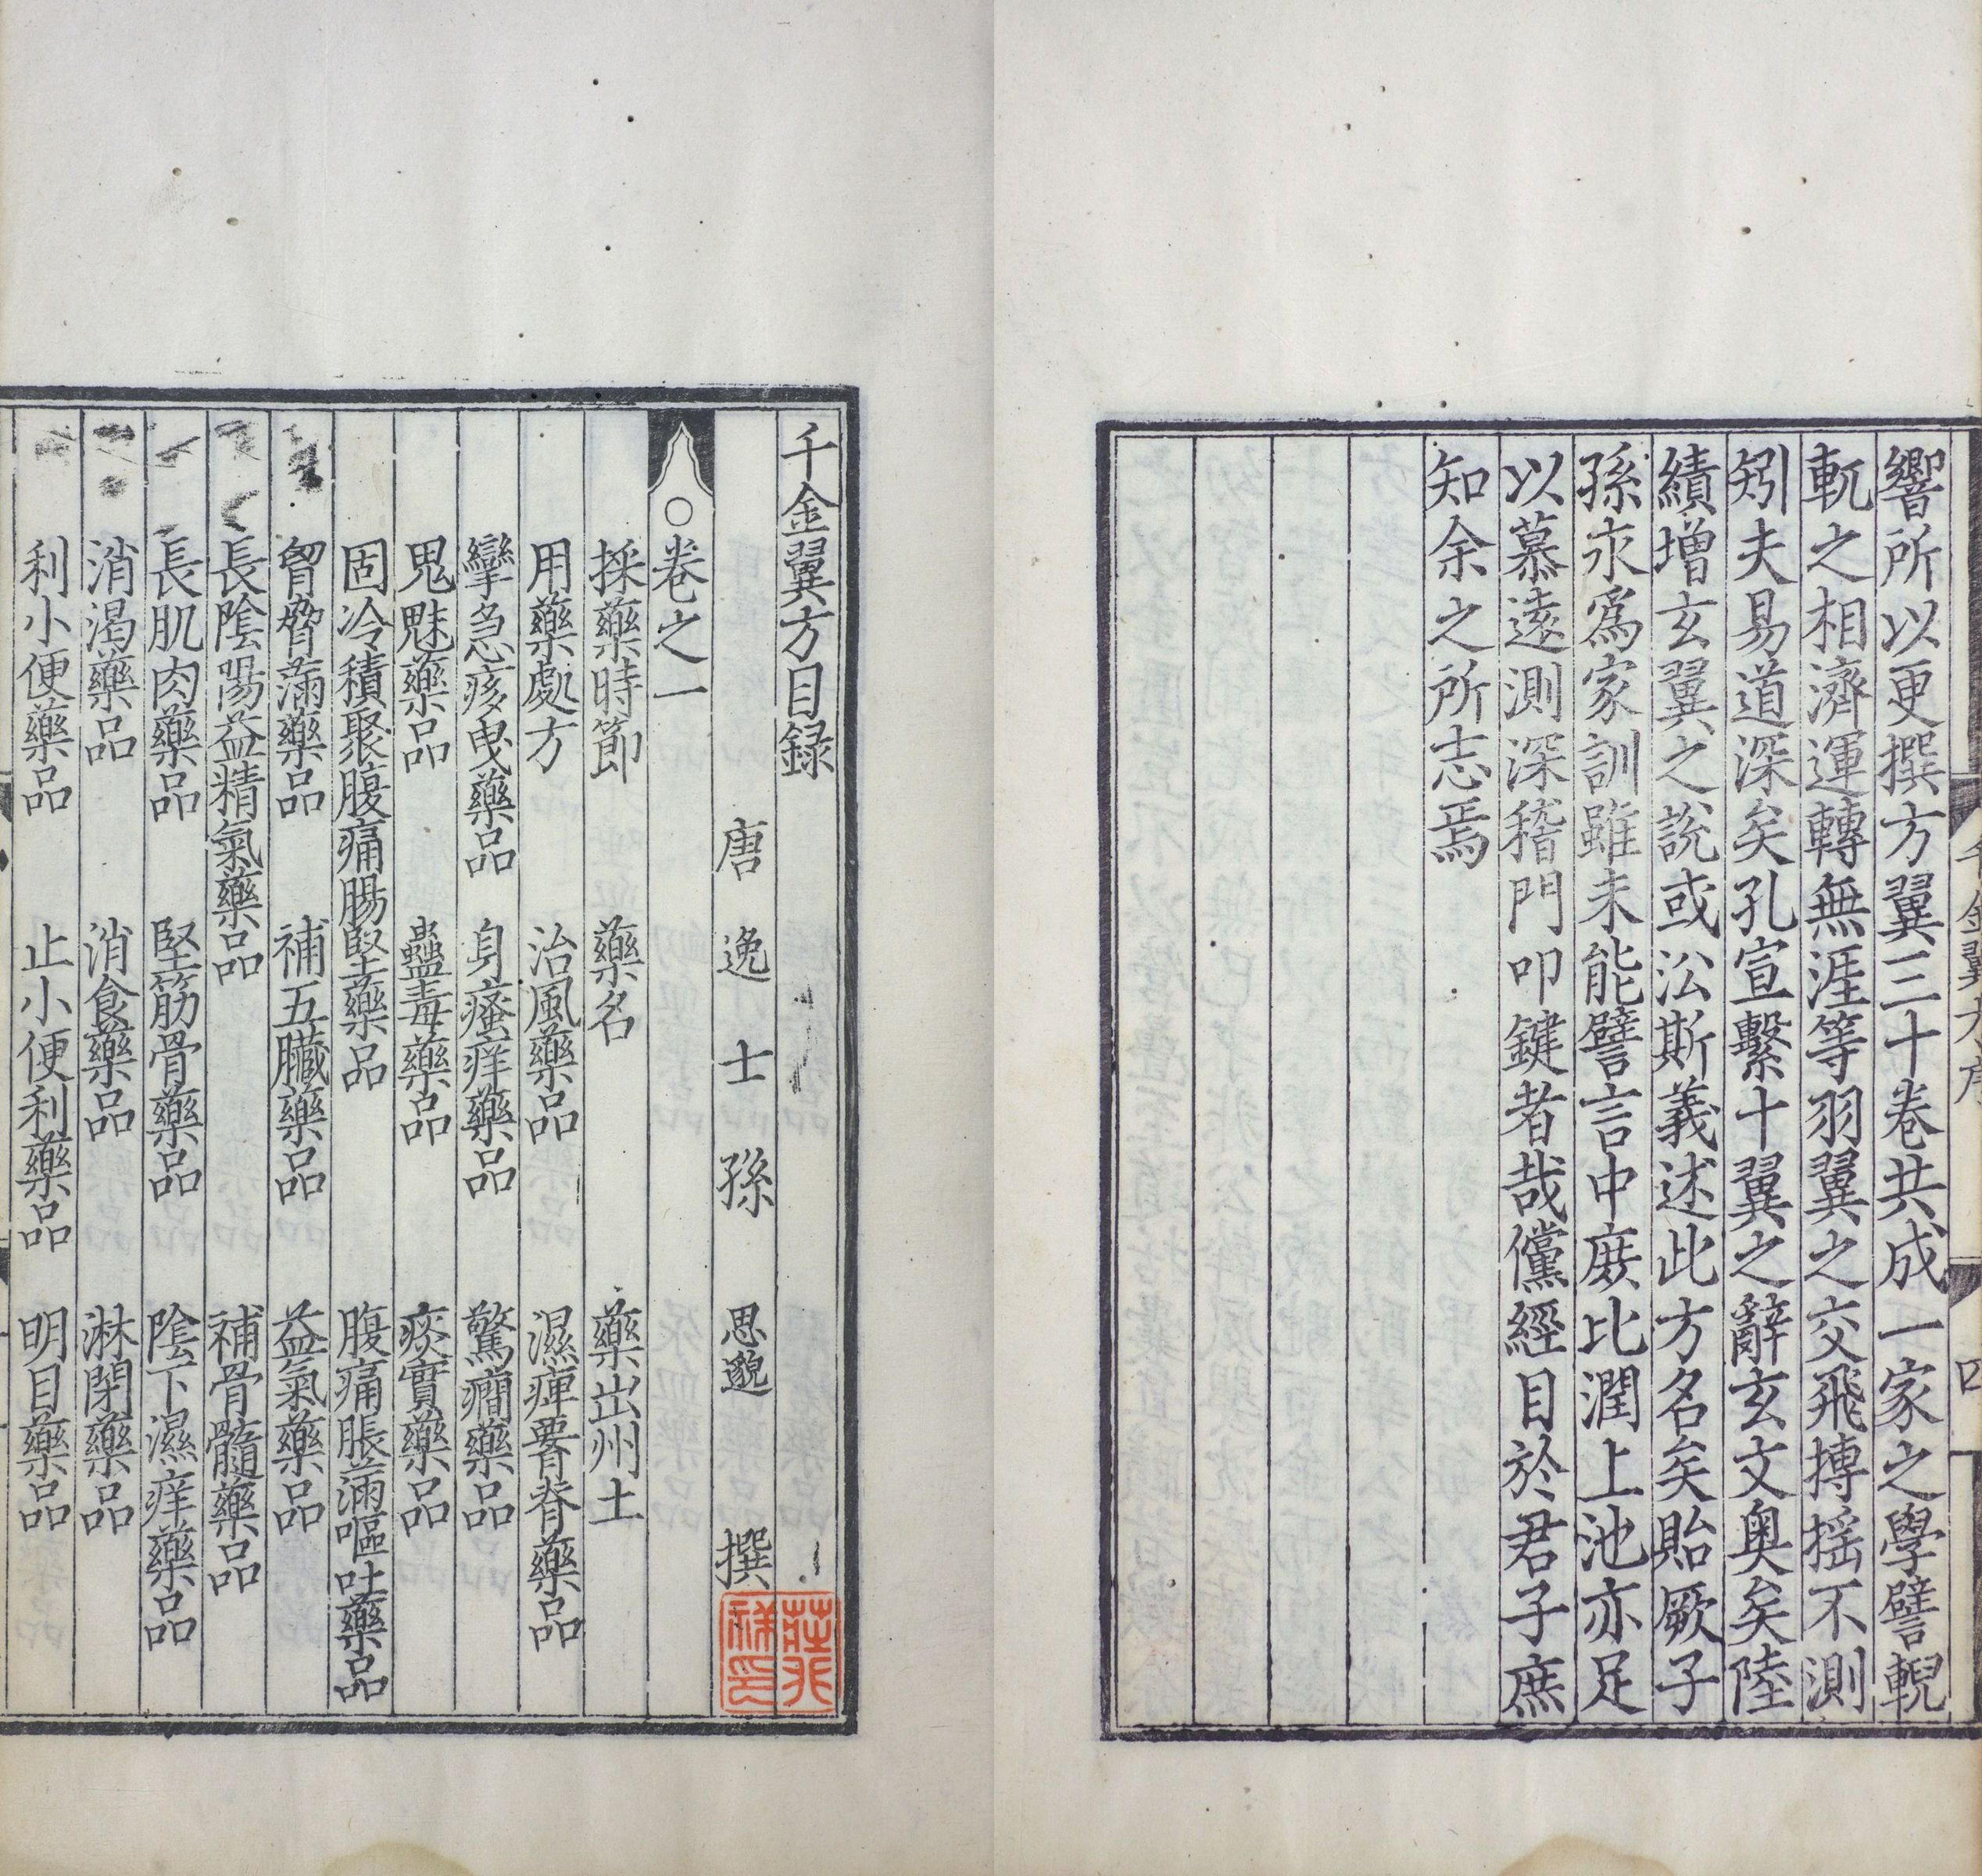 響所以更撰方翼三十卷共成一家之學譬輗
軏之相濟運轉無涯等羽翼之交飛摶摇不測
矧夫易道深矣孔宣繫十翼之辭玄文奥矣陸
績增玄翼之説或㳂斯義述此方名矣貽厥子
孫永爲家訓雖未能譬言中庻比潤上池亦足
以慕遠測深稽門叩鍵者哉儻經目於君子庶
知余之所志焉
千金翼方目録
唐逸士孫思邈撰
卷之一
採藥時節 藥名 藥出州土
用藥處方 治風藥品 濕痺腰脊藥品
攣急㾋曳藥品 身瘙痒藥品 驚癎藥品
鬼魅藥品 蠱毒藥品 痰實藥品
固冷積聚腹痛腸堅藥品 腹痛脹滿嘔吐藥品
胷脅滿藥品 補五臟藥品 益氣藥品
長陰陽益精氣藥品 補骨髓藥品
長肌肉藥品 堅筋骨藥品 陰下濕痒藥品
消渴藥品 消食藥品 淋閉藥品
利小便藥品 止小便利藥品 明目藥品